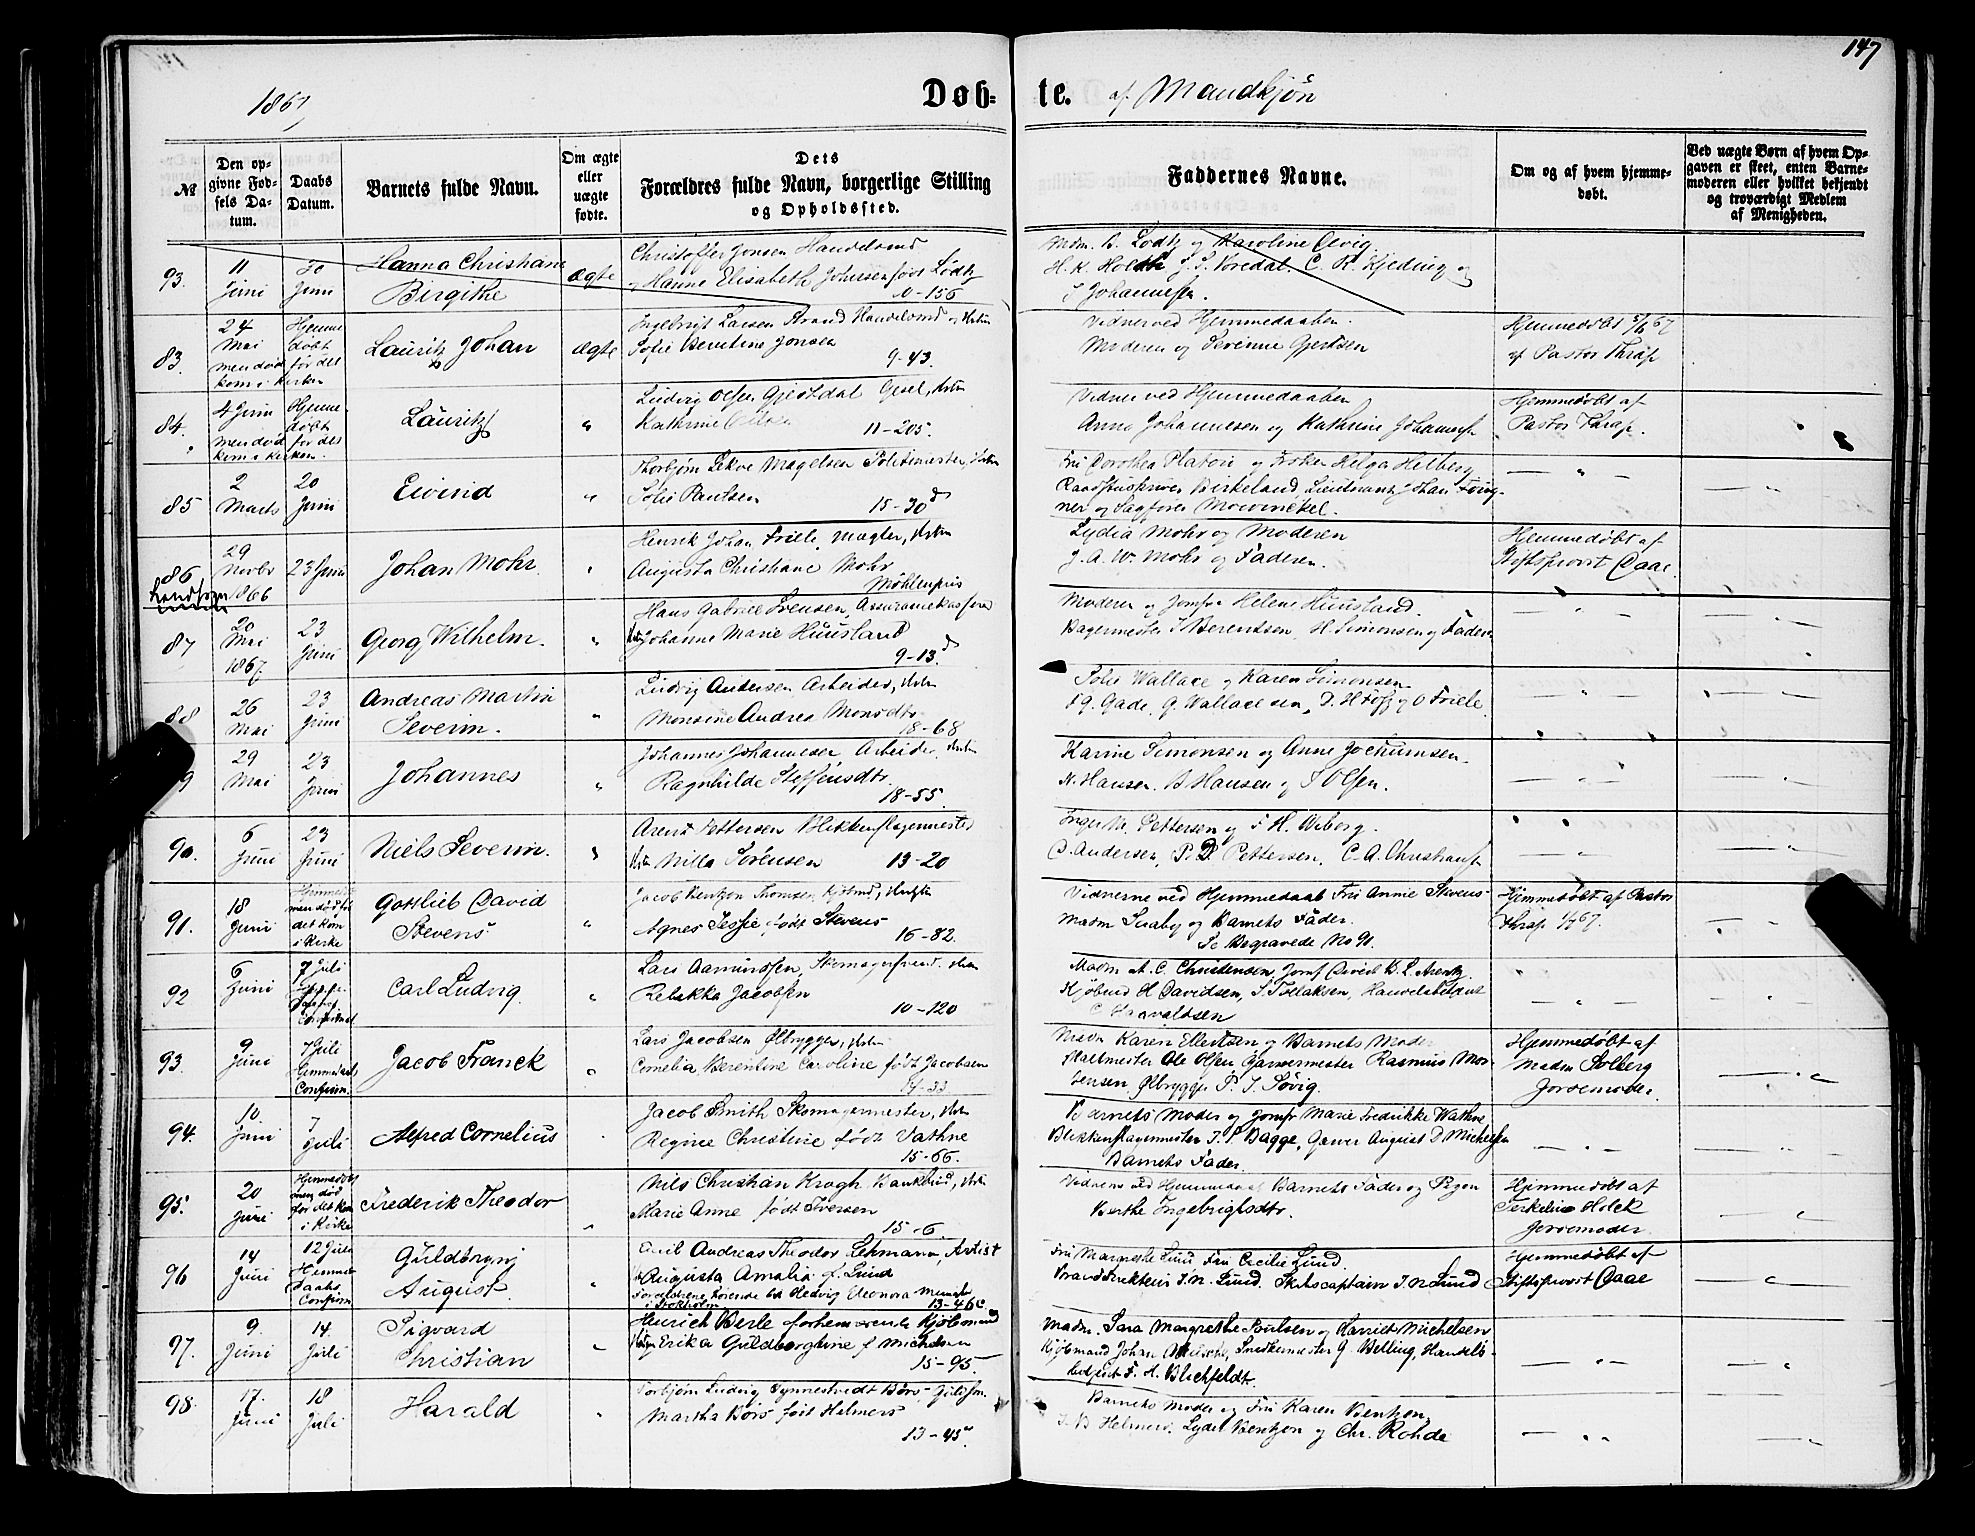 147
1867
Døb- te. af Mandkjøn
№
Den opgivne Fødsels Datum.
Daabs Datum.
Barnets fulde Navn.
Om ægte eller uægte fødte.
Dets
Forældres fulde Navn, borgerlige Stilling
og Opholdssted.
Faddernes Navne.
Om og af hvem hjemmedøbt.
Ved uægte Børn af hvem Opgaven er skeet, enten Barnemoderen eller hvilket bekjendt og troværdigt Medlem af Menigheden.
93. 11 Juni 30 Juni Hanna Christiane Birgithe Ægte
Christoffer Jonsen Handelsmd
Hanne Elisabeth Johnsen født Lødtz
10-156
Madm. B. Lodtz og Karoline Olvig.
H. K. Holdt J. S. Voredal, C. R. Kjeding og
J Johannessen.
83. 24 Mai Hjemmedøbt men død før det kom i Kirken
Lauritz Johan Ægte
Ingebrigt Larsen Strand Handelsmd og Hustru
Sofie Berntine Jonsen
9-43.
Vidner ved Hjemmedaaben.
Moderen og Severine Gjertsen
Hjemmedøbt 5/6 67
af Pastor Thrap
84. 4 Juni Hjemmedøbt men død før det kom i Kirken.
Lauritz "
Ludvig Olsen Gjestdal Gesel, Hstru
Kathrine
11-205.
Vidner ved Hjemmedaaben
Anna Johannesen og Kathrine Johannes
Hjemmedøbt af
Pastor Thrap.
85 2 Marts 20 Juni Eivind "
Thorbjørn Lekve Magelsen Politimester, Hstru
Sofie Paulsen
15-30 d
Fru Dorothea Platou og Frøken Helga Helberg
Raadstuskriver Birkeland, Lieutnant Johan Foug-
ner og Sagfører Mowinckel.
— " —
86 29 Novbr 1866 23 Juni Johan Mohr. "
Henrik Johan Friele, Mægler, Hstru
Augusta Christiane Mohr
Møhlenpris
Lydia Mohr og Moderen
J. A. W. Mohr og Faderen.
Hjemmedøbt af
Stiftsprovst Daae.
87 20 Mai 1867 23 Juni Georg Wilhelm. "
Hans Gabriel Svensen, Assurancekasserer
Johanne Marie Huusland
9-13. d
Moderen og Jomfru Helene Huusland.
Bagermester J Berentsen, H. Simonsen og Faderen
88 26 Mai 23 Juni Andreas Martin Severin. "
Ludvig Andersen Arbeider, Hstru
Monsine Andrea Monsdtr
18-68
Sofie Wallace og Karen Simonsen
F G. Gade, G. Wallace sen, D. H og O Friele.
9 29 Mai 23 Juni Johannes "
Johannes Johannesen Arbeider, Hustru
Ragnhilde Steffensdtr.
18-55.
Karine Simonsen og Anne Jochumsen
N. Hansen. B Hansen og J Olsen.
90. 6 Juni 23 Juni Niels Severin. "
Arent Pettersen Blikkenslagermester
Nilla Sørensen 13-20
Inger M. Pettersen og F H. Wiborg.
D. Andersen, P. D. Pettersen, C. A. Christians
91. 18 Juni Hjemmedøbt men død før det kom i Kirke
Gottlieb David Stevens "
Jacob Bentzon Thomsen, Kjøbmd, Hustru
Agnes Jessie født Stevens
16-82.
Vidnerne ved Hjemmedaab Fru Annie Stevens
Madm Suaby og Barnets Fader.
Se Begravede No 91.
Hjemmedøbt af Pastor
Thrap 1/7 67.
92 6 Juni 7 Juli
Carl Ludvig "
Lars Aamundsen, Skomagersvend. Hstru
Rebakka Jacobsen
10-120
Madm A. C. Christensen, Jomf David B. L. Arentz.
Kjøbmd H Davidsen, S. Tollaksen, Handelsbetjent
C Haavaldsen
93. 9 Juni 7 Juli Hjemmedaab Confirm.
Jacob Franck "
Lars Jacobsen Ølbrygger, Hstru
Cornelia Berentine Caroline født Jacobsen
14-33
Madm Karen Ellertsen og Barnets Moder
Maltmester Ole Olsen Garvermester Rasmus Mor-
tensen Ølbrygger P. J. Søvig.
Hjemmedøbt af
Madm Solberg
Jordemoder.
94. 10 Juni 7 Juli Alfred Cornelius
Jacob Smith Skomagermester, Hstru
Regine Christine født Vathne
15-66.
Barnets Moder og Jomfr Marie Fredrikke Wathne
Blikkenslagermester J. P. Bagge, Garver August D Michelsen
Barnets Fader.
95. 20 Juni Hjemmedøbt men død før det kom i Kirke
Frederik Theodor "
Nils Christian Krogh. Bankbud, Hstru
Marie Anne født Iversen
15-6.
Vidnerne ved Hjemmedaab Barnets Fader og Pigen
Berthe Ingebrigtsdtr.
Hjemmedøbt af
Terkeline Holck
Jordemoder
96 14 Juni 12 Juli Hjemmedaabs Confirm
Guldbrand August "
Emil Andreas Theodor Lehmann, Artist
Augusta Amalia f. Lund
Forældrene hørende til Hedvig Eleonora Menighed
i Stokholm 13-46 c
Fru Margrethe Lund, Fru Cecilie Lund.
Branddirekteur J. N. Lund Skibscaptain J. N Lund
Hjemmedøbt af
Stiftsprovst Daae
97. 9. Juni 14. Juli Sigvard Christian "
Heinrich Berle forhenværende Kjøbmand
Erika Guldborgine f Michelsen
15-95
Madm. Sara Margrethe Poulsen og Harriet Michelsen
Kjøbmand Johan, Snedkermester G. Belling, Handels-
betjent F. A. Blichfeldt.
98. 17. Juni 18 Juli Harald "
Torbjørn Ludvig Synnestvedt Børs-
Martha Børs født Helmers
13-45
Barnets Moder og Fru Karen Bentzon
J. B Helmers, Lyder Bentzon og Chr. Rohde